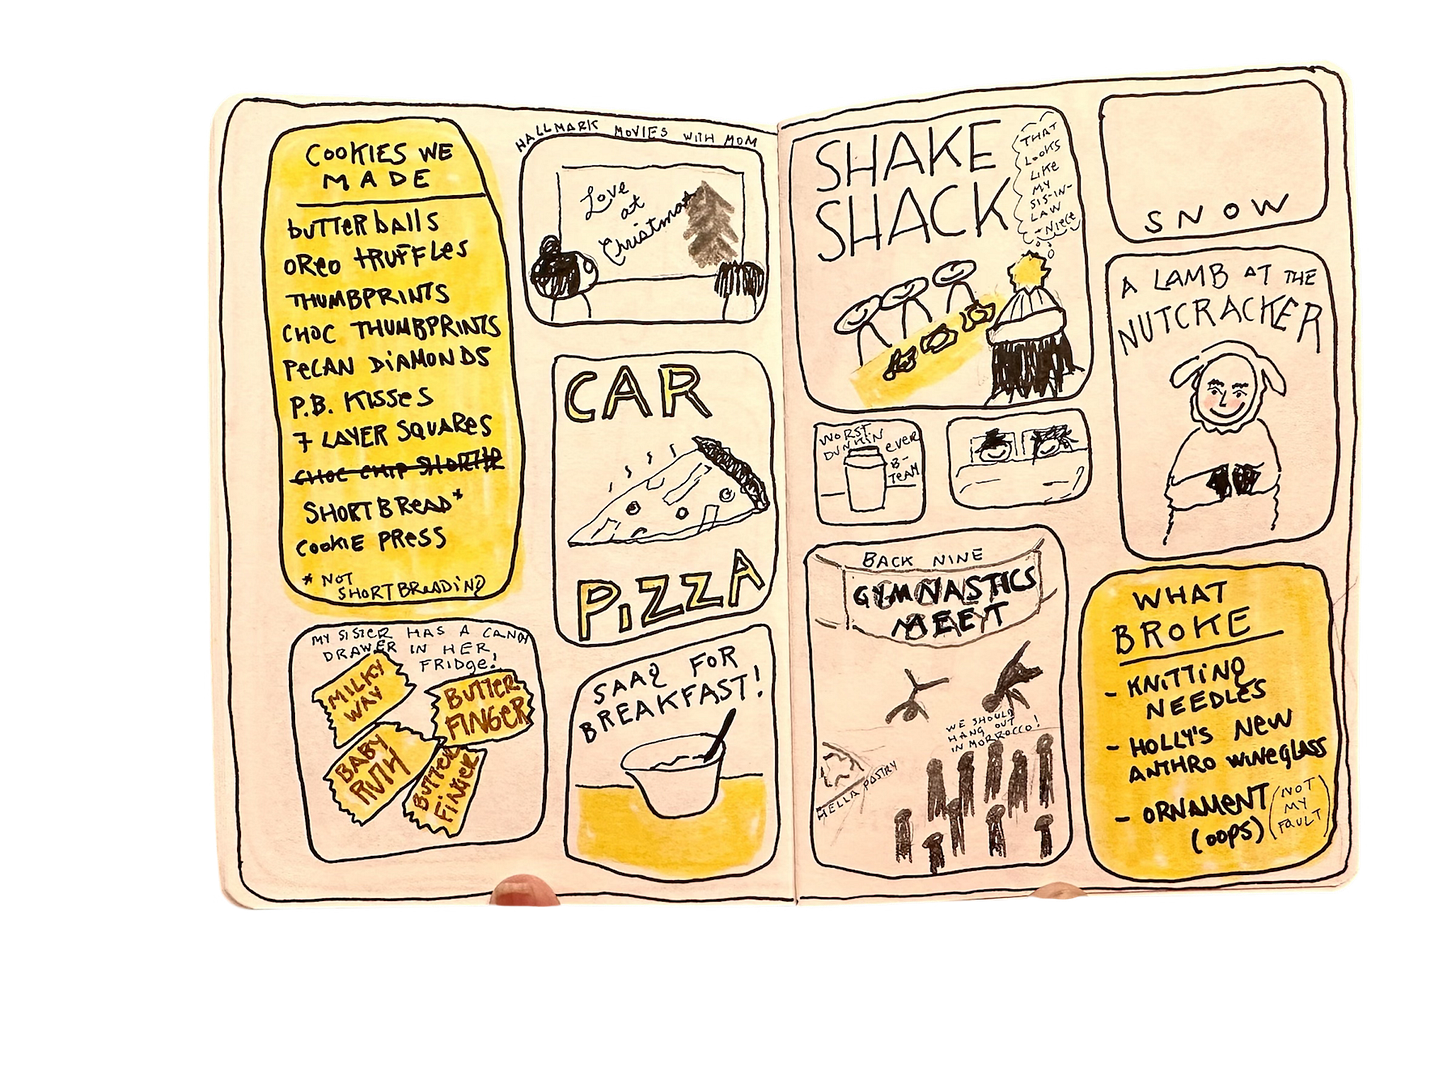 COOKIES WE
MADE
butter balls
OREO TRUFFLES
THUMBPRINTS
CHOC THUMBPRINTS
PECAN DIAMONDS
P.B. KISSES
7 LAYER SQUARES
CHOC CHIP
SHORTBREAD*
COOKIE PRESS
* NOT
SHORTBREADING
HALLMARK MOVIES WITH MOM
Love
at
Christmas
CAR
PIZZA
MY SISTER HAS A CANDY
DRAWER IN HER
FRIDGE!
MILKY
WAY
BUTTER
FINGER
BABY
RUTH
BUTTER
FINGER
SAAG FOR
BREAKFAST!
SHAKE
SHACK
THAT
LOOKS
LIKE
MY
SIS-IN-
LAW
-NIECE
WORST
DUNKIN
EVER
B-
TEAM
BACK NINE
GYMNASTICS
MEET
WE SHOULD
HANG OUT
IN MORROCCO!
HELLA PASTRY
SNOW
A LAMB AT THE
NUTCRACKER
WHAT
BROKE
- KNITTING
NEEDLES
- HOLLY'S NEW
ANTHRO WINEGLASS
- ORNAMENT
(OOPS)
(NOT
MY
FAULT)